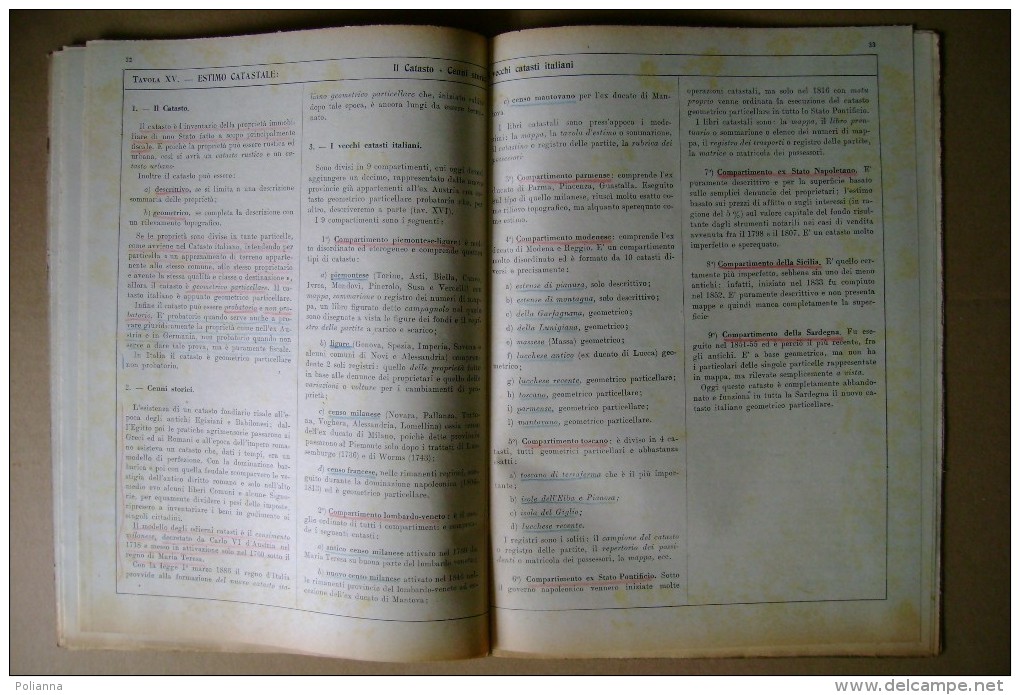 22
TAVOLA XV. — ESTIMO CATASTALE:
Il Catasto - Cenni storici
vecchi catasti italiani
23
1. — Il Catasto.
Il catasto è l'inventario della proprietà immobi-
liare di uno Stato fatto a scopo principalmente
fiscale. E poichè la proprietà può essere rustica ed
urbana, così si avrà un catasto rustico e un ca-
tasto urbano.
Inoltre il catasto può essere:
a) descrittivo, se si limita a una descrizione
sommaria delle proprietà;
b) geometrico, se completa la descrizione con
un rilevamento topografico.
Se le proprietà sono divise in tante particelle,
come avviene nel Catasto italiano, intendendo per
particella « un appezzamento di terreno apparte-
nente allo stesso comune, allo stesso proprietario
e avente la stessa qualità e classe o destinazione »,
allora il catasto è geometrico particellare. Il ca-
tasto italiano è appunto geometrico particellare.
Infine il catasto può essere probatorio e non pro-
batorio. E' probatorio quando serve anche a pro-
vare giuridicamente la proprietà come nell'ex Au-
stria e in Germania, non probatorio quando non
serve a dare tale prova, ma è puramente fiscale.
In Italia il catasto è geometrico particellare
non probatorio.
2. — Cenni storici.
L'esistenza di un catasto fondiario risale all'e-
poca degli antichi Egiziani e Babilonesi; dal-
l'Egitto poi le pratiche agrimensorie passarono ai
Greci ed ai Romani e all'epoca dell'impero roma-
no esisteva un catasto che, dati i tempi, era un
modello di perfezione. Con la dominazione bar-
barica e poi con quella feudale scomparvero le ve-
stigia dell'antico diritto romano e solo nell'alto
medio evo alcuni liberi Comuni e alcune Signo-
rie, per equamente dividere i pesi delle imposte,
ripresero a inventariare i beni in godimento ai
singoli cittadini.
Il modello degli odierni catasti è il censimento
milanese, decretato da Carlo VI d'Austria nel
1718 e messo in attivazione solo nel 1760 sotto il
regno di Maria Teresa.
Con la legge 1° marzo 1886 il regno d'Italia
provvide alla formazione del nuovo catasto ita-
liano geometrico particellare che, iniziato
dopo tale epoca, è ancora lungi da essere termi-
nato.
3. — I vecchi catasti italiani.
Sono divisi in 9 compartimenti, cui oggi
aggiungere un decimo, rappresentato dalle nuove
provincie già appartenenti all'ex Austria con ca-
tasto geometrico particellare probatorio che, per
ciò, descriveremo a parte (tav. XVI).
I 9 compartimenti sono i seguenti:
1°) Compartimento piemontese-ligure: è mol-
to disordinato ed eterogeneo e comprende questi
tipi di catasto:
a) piemontese (Torino, Asti, Biella, Cuneo,
Ivrea, Mondovì, Pinerolo, Susa e Vercelli) con
mappa, sommarione o registro dei numeri di map-
pa, un libro figurato detto campagnolo nel quale
sono disegnate a vista le figure dei fondi e il regi-
stro delle partite a carico e scarico;
b) ligure (Genova, Spezia, Imperia, Savona e
alcuni comuni di Novi e Alessandria) compren-
dente 2 soli registri: quello delle proprietà fatto
in base alle denunce dei proprietari e quello delle
variazioni o volture per i cambiamenti di pro-
prietà;
c) censo milanese (Novara, Pallanza, Torto-
na, Voghera, Alessandria, Lomellina) ossia censo
dell'ex ducato di Milano, poichè dette provincie
passarono al Piemonte solo dopo i trattati di
(1736) e di Worms (1743);
d) censo francese, nelle rimanenti regioni, ese-
guito durante la dominazione napoleonica
1813) ed è geometrico particellare.
2°) Compartimento lombardo-veneto: è il me-
glio ordinato di tutti i compartimenti e compren-
de i seguenti catasti:
a) antico censo milanese attivato nel 1760 da
Maria Teresa su buona parte del lombardo veneto;
b) nuovo censo milanese attivato nel
le rimanenti provincie del lombardo-veneto ad ec-
cezione dell'ex ducato di Mantova;
c) censo mantovano per l'ex ducato di Man-
tova
I libri catastali sono press'appoco i mode-
rni: la mappa, la tavola d'estimo o sommarione,
il catastino o registro delle partite, la rubrica dei
possessore.
3°) Compartimento parmense: comprende l'ex
ducato di Parma, Piacenza, Guastalla. Eseguito
sul tipo di quello milanese, riuscì molto esatto co-
me rilievo topografico, ma alquanto sperequato co-
me estimo.
4°) Compartimento modenese: comprende l'ex
ducato di Modena e Reggio. E' un compartimento
molto disordinato ed è formato da 10 catasti di-
versi e precisamente:
a) estense di pianura, solo descrittivo;
b) estense di montagna, solo descrittivo;
c) della Garfagnana, geometrico;
d) della Lunigiana, geometrico;
e) massese (Massa) geometrico;
f) lucchese antico (ex ducato di Lucca) geo-
metrico;
g) lucchese recente, geometrico particellare;
h) toscano, geometrico particellare;
i) parmense, geometrico particellare;
l) mantovano, geometrico particellare.
5°) Compartimento toscano: è diviso in 4 ca-
tasti, tutti geometrici particellari e abbastanza
esatti:
a) toscano di terraferma che è il più impor-
tante;
b) Isole dell'Elba e Pianosa;
c) isola del Giglio;
d) lucchese recente.
I registri sono i soliti: il campione del catasto
o registro delle partite, il repertorio dei possi-
denti o matricola dei possessori, la mappa, ecc.
6°) Compartimento ex Stato Pontificio. Sotto
il governo napoleonico vennero iniziate molte
operazioni catastali, ma solo nel 1816 con motu
proprio venne ordinata la esecuzione del catasto
geometrico particellare in tutto lo Stato Pontificio.
I libri catastali sono: la mappa, il libro brou-
tuario o sommarione o elenco dei numeri di map-
pa, il registro dei trasporti o registro delle partite,
la matrice o matricola dei possessori.
7°) Compartimento ex Stato Napoletano. E'
puramente descrittivo e per la superficie basato
sulle semplici denuncie dei proprietari; l'estimo
basato sui prezzi di affitto o sugli interessi (in ra-
gione del 5 %) sul valore capitale del fondo risul-
tante dagli strumenti notarili nei casi di vendita
avvenuta fra il 1798 e il 1807. E' un catasto molto
imperfetto e sperequato.
8°) Compartimento della Sicilia. E' quello cer-
tamente più imperfetto, sebbene sia uno dei meno
antichi: infatti, iniziato nel 1833 fu compiuto
nel 1852. E' puramente descrittivo e non presenta
mappe e quindi manca completamente la super-
ficie.
9°) Compartimento della Sardegna. Fu ese-
guito nel 1851-55 ed è perciò il più recente, fra
gli antichi. E' a base geometrica, ma non ha
i particolari delle singole particelle rappresentate
in mappa, ma rilevate semplicemente a vista.
Oggi questo catasto è completamente abbando-
nato e funziona in tutta la Sardegna il nuovo ca-
tasto italiano geometrico particellare.
Polianna
delcampe.net